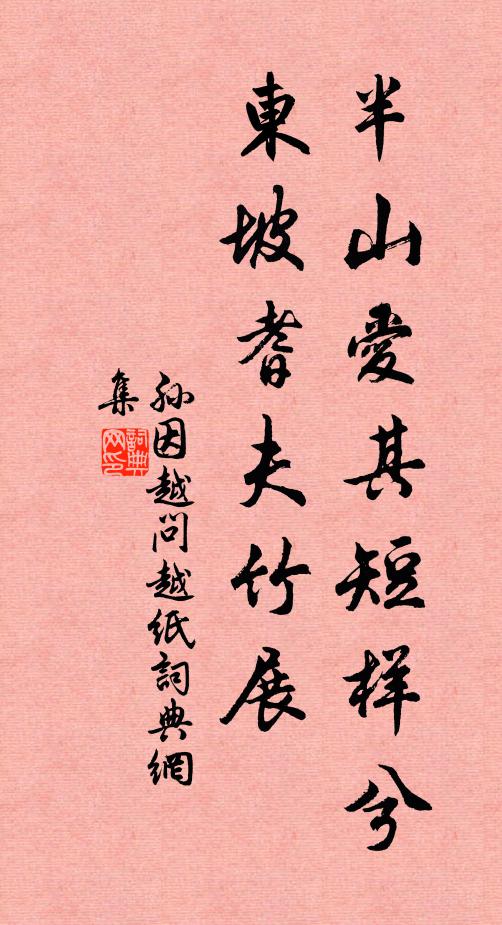 半山愛其短样兮
東坡耆夫竹展
孫因越問越紙詞典網
集
詞典
网印